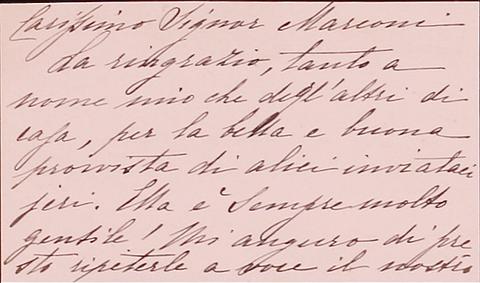 Carissimo Signor Marconi
La ringrazio, tanto a
nome mio che degl'altri di
casa, per la bella e buona
provvista di alici inviataci
jeri. Ella è sempre molto
gentile! Mi auguro di pre
sto ripeterle a voce il nostro